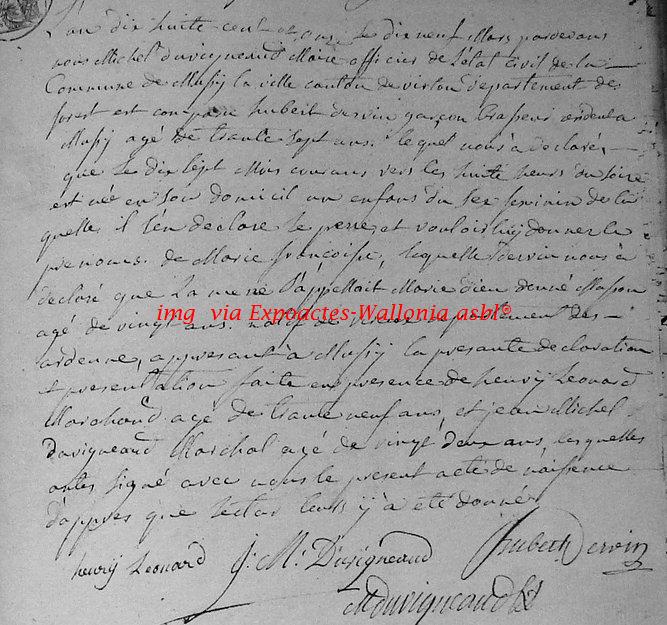 L'an dix huite cent onze le dix neuf Mars pardevans
nous Michel Duvigneaud Maire officier de l'état Civil de la
Commune de Mussy la ville canton de virton département des
forest est comparu hubert dervin garçon brasseur
Mussy agé de trante sept ans. lequel nous à déclaré,
que le dix sept Mois courans vers les huite heurs du soire
est née en son domicil un enfans du sex feminin de la
quelle il s'en declare le perre, et vouloir luy donner le
prenoms. de Marie françoise, laquelle dervin nous à
déclaré que la mere s'appellait Marie dieu donné Masson
agé de vingt ans. natif de departement des
ardenne, appresant à Mussy la présante declaration
et présentation faite en presence de henry Leonard
Marchand agé de trante neuf ans, et jean Michel
Duvigneaud Marchal agé de vingt deux ans, lesquelles
ontes signé avec nous le present acte de naisence
d'appres que lectur leurs y à été donné
henry Leonard J. M. Duvigneaud hubert Dervin
M duvigneaud
img via Expoactes-Wallonia asbl©